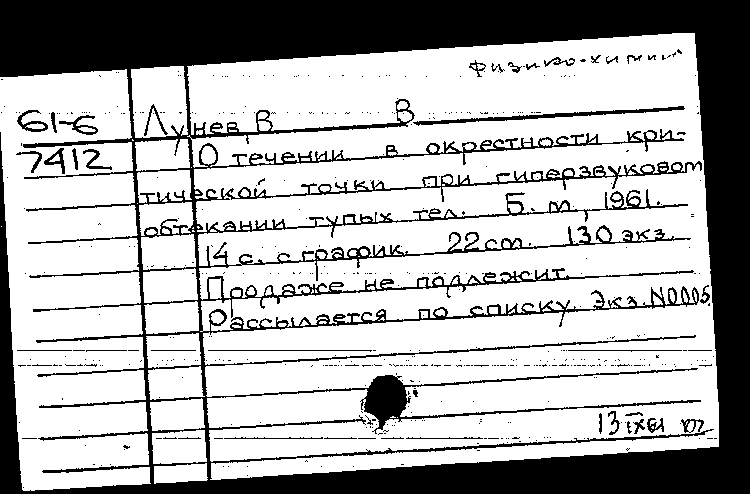 Физико-химии
61-6
7412
Лунев, В В
О течении в окрестности кри-
тической точки при гиперзвуковом
обтекании тупых тел. Б. м., 1961.
14 с. с график. 22 см. 130 экз.
Продаже не подлежит.
Рассылается по списку. Экз. N0005
13 IX 61